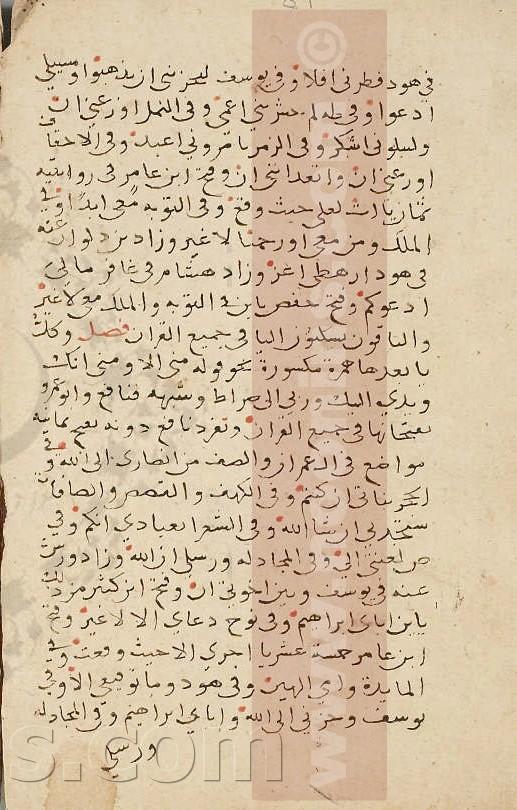 في هود فطرني افلا وفي يوسف ليحزنني ان تذهبوا وسبيلي
ادعوا وفي طه لم حشرتني اعمى وفي النمل اوزعني ان
وليبلوني اشكر وفي الزمر تامروني اعبد وفي الاحقاف
اوزعني ان واتعدانني ان وفتح ابن عامر في روايتيه
ثمان ياات لعلي حيث وقع وفي التوبه معي ابدا وفي
الملك ومن معي اورحمنا لا غير وزاد بن ذكوان عنه
في هود ارهطي اعز وزاد هشام في غافر مالي
ادعوكم وفتح حفص ياين في التوبه والملك معي لا غير
والباقون يسكنون اليا في جميع القران فصل وكل
يا بعدها همزة مكسورة نحو قوله مني الا ومني انك
ويدي اليك وربي الى صراط وشبهه فنافع وابو عمرو
يفتحانها في جميع القران وتفرد نافع دونه بفتح ثمانيه
مواضع في ال عمران والصف من انصاري الى الله وفي
الحجر بناتي ان كنتم وفي الكهف والقصص والصافات
ستجدني ان شا الله وفي الشعرا بعبادي انكم وفي
ص لعنتي الى وفي المجادله ورسلي ان الله وزاد ورش
عنه في يوسف وبين اخوتي ان وفتح ابن كثير من ذلك
ياين اباي ابراهيم وفي نوح دعاي الا لا غير وفتح
ابن عامر خمسة عشر يا اجري الا حيث وقعت وفي
المايدة وامي الهين وفي هود وما توفيقي الا وفي
يوسف وحزني الى الله واباي ابراهيم وفي المجادله
ورسلي
s.com